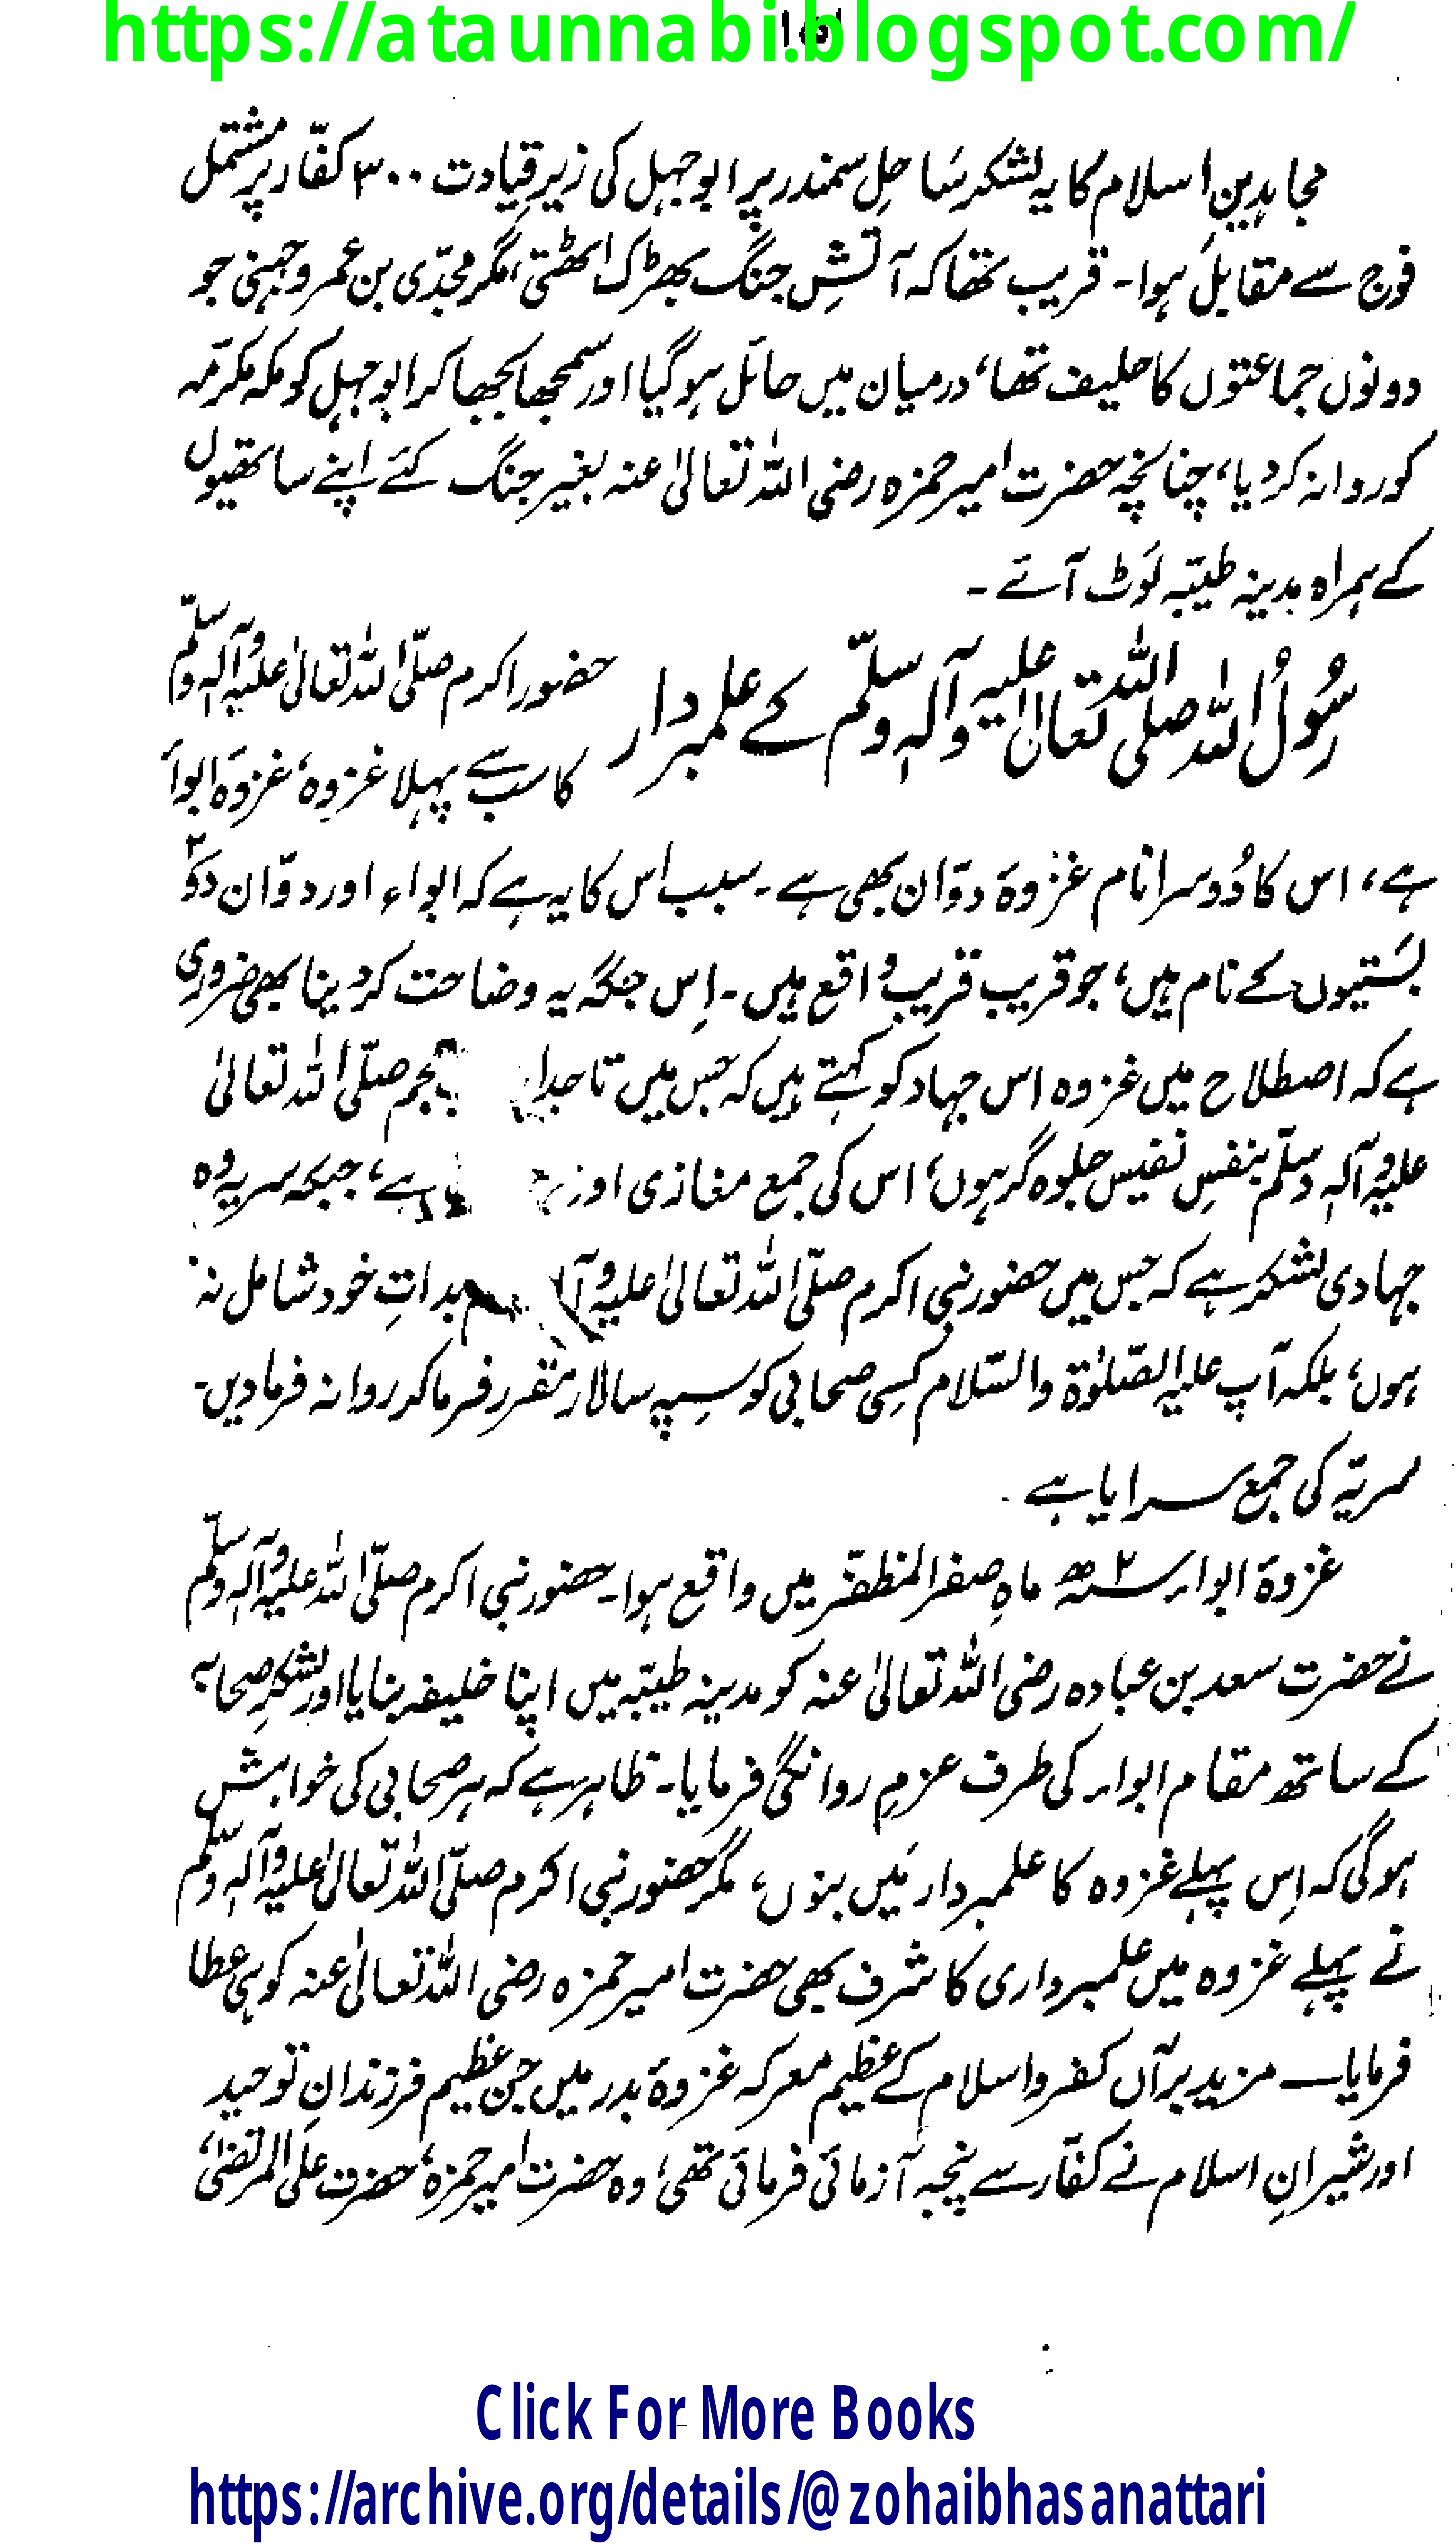 https://ataunnabi.blogspot.com/
مجاہدینِ اسلام کا یہ لشکر سَاحلِ سمندر پر ابوجہل کی زیرِ قیادت ۳۰۰ کفّار پر مشتمل
فوج سے مقابل ہوا۔ قریب تھا کہ آتشِ جنگ بھڑک اٹھتی، مگر مجدّی بن عمرو جہنی جو
دونوں جماعتوں کا حلیف تھا، درمیان میں حائل ہوگیا اور سمجھا بجھا کر ابوجہل کو مکہ مکرّمہ
کو روانہ کردیا، چنانچہ حضرت امیر حمزہ رضی اللہ تعالیٰ عنہ بغیر جنگ کئے اپنے ساتھیوں
کے ہمراہ مدینہ طیبّہ لَوٹ آئے۔
رسُولُ اللہ صلی اللہ تعالیٰ علیہ وآلہٖ وسلّم کے علمبردار
حضور اکرم صلّی اللہ تعالیٰ علیہ وآلہٖ وسلّم
کا سب سے پہلا غزوہ، غزوۂ ابواَ
ہے، اس کا دُوسرا نام غزوۃ دوّان بھی ہے۔ سبب اس کا یہ ہے کہ ابواء اور دوّان دَوْ
بستیوں کے نام ہیں، جو قریب قریب واقع ہیں۔ اِس جگہ یہ وضاحت کردینا بھی ضروری
ہے کہ اصطلاح میں غزوہ اس جہاد کو کہتے ہیں کہ جس میں تاجدار عجم صلّی اللہ تعالیٰ
علیہ وآلہٖ وسلّم بنفسِ نفیس جلوہ گر ہوں، اس کی جمع مغازی اور ہے، جبکہ سریہ وہ
جہادی لشکر ہے کہ جس میں حضور نبی اکرم صلّی اللہ تعالیٰ علیہ وآلہٖ وسلم بذاتِ خود شامل نہ
ہوں، بلکہ آپ علیہ الصّلوٰۃ والسّلام کسی صحابی کو سپہ سالار مقرر فرما کر روانہ فرمادیں۔
سریّہ کی جمع سرایا ہے۔
غزوۃ ابواء سنہ ۲ھ ماہِ صفر المظفّر میں واقع ہوا۔ حضور نبی اکرم صلّی اللہ علیہ وآلہٖ وسلّم
نے حضرت سعد بن عبادہ رضی اللہ تعالیٰ عنہ کو مدینہ طیبّہ میں اپنا خلیفہ بنایا اور لشکرِ صحابہ
کے ساتھ مقام ابواء کی طرف عزمِ روانگی فرمایا۔ ظاہر ہے کہ ہر صحابی کی خواہش
ہوگی کہ اِس پہلے غزوہ کا علمبردار مَیں بنوں، مگر حضور نبی اکرم صلّی اللہ تعالیٰ علیہ وآلہٖ وسلّم
نے پہلے غزوہ میں علمبرداری کا شرف بھی حضرت امیر حمزہ رضی اللہ تعالیٰ عنہ کو ہی عطا
فرمایا۔ مزید برآں کفر و اسلام کے عظیم معرکہ غزوۂ بدر میں جن عظیم فرزندانِ توحید
اور شیرانِ اسلام نے کفّار سے پنجہ آزمائی فرمائی تھی، وہ حضرت امیر حمزہ، حضرت علی المرتضیٰ،
Click For More Books
https://archive.org/details/@zohaibhasanattari